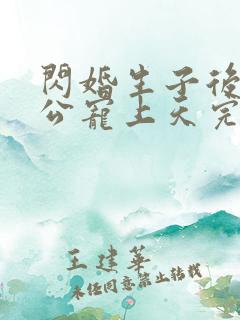 閃婚生子後
公寵上天完
王建華
未經同意禁止轉載